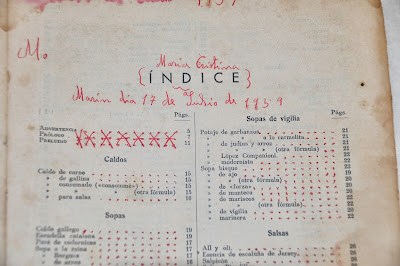 1959
M.
Maria Cristina
{ÍNDICE}
Marín día 17 de Julio de 1959
Págs.
ADVERTENCIA 5
PRÓLOGO 7
PRELUDIO 11
Caldos
Caldo de carne 15
» de gallina 15
» concensado («consommé») 15
» » (otra fórmula) 15
» para salsas 16
Sopas
Caldo gallego 17
Escudella catalana 19
Pura de codornices 19
Sopa a la reina 19
» Bergues
» de arroz
Págs.
Sopas de vigilia
Potaje de garbanzos 21
» » a lo carmelita 21
» de judías y arroz 21
» » (otra fórmula) 21
» López Companioni 22
» modernista 22
Sopa bisque 20
» de ajo 20
» » (otra fórmula) 20
» de «forza» 20
» de menta 22
» de mariscos 22
» » (otra fórmula) 22
» de vigilia 22
» marinera 22
Salsas
All y oli
Esencia de escaluña de Jersey
Salpicón